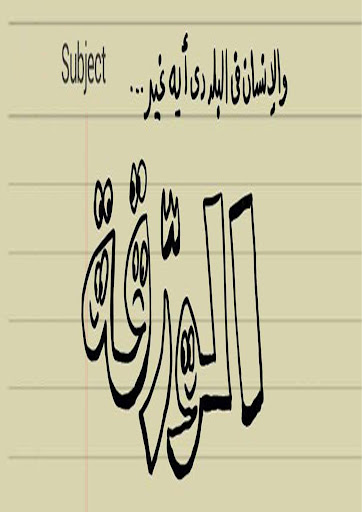 Subject
والإنسان فى البلد دى أيه غير ...
الورقة